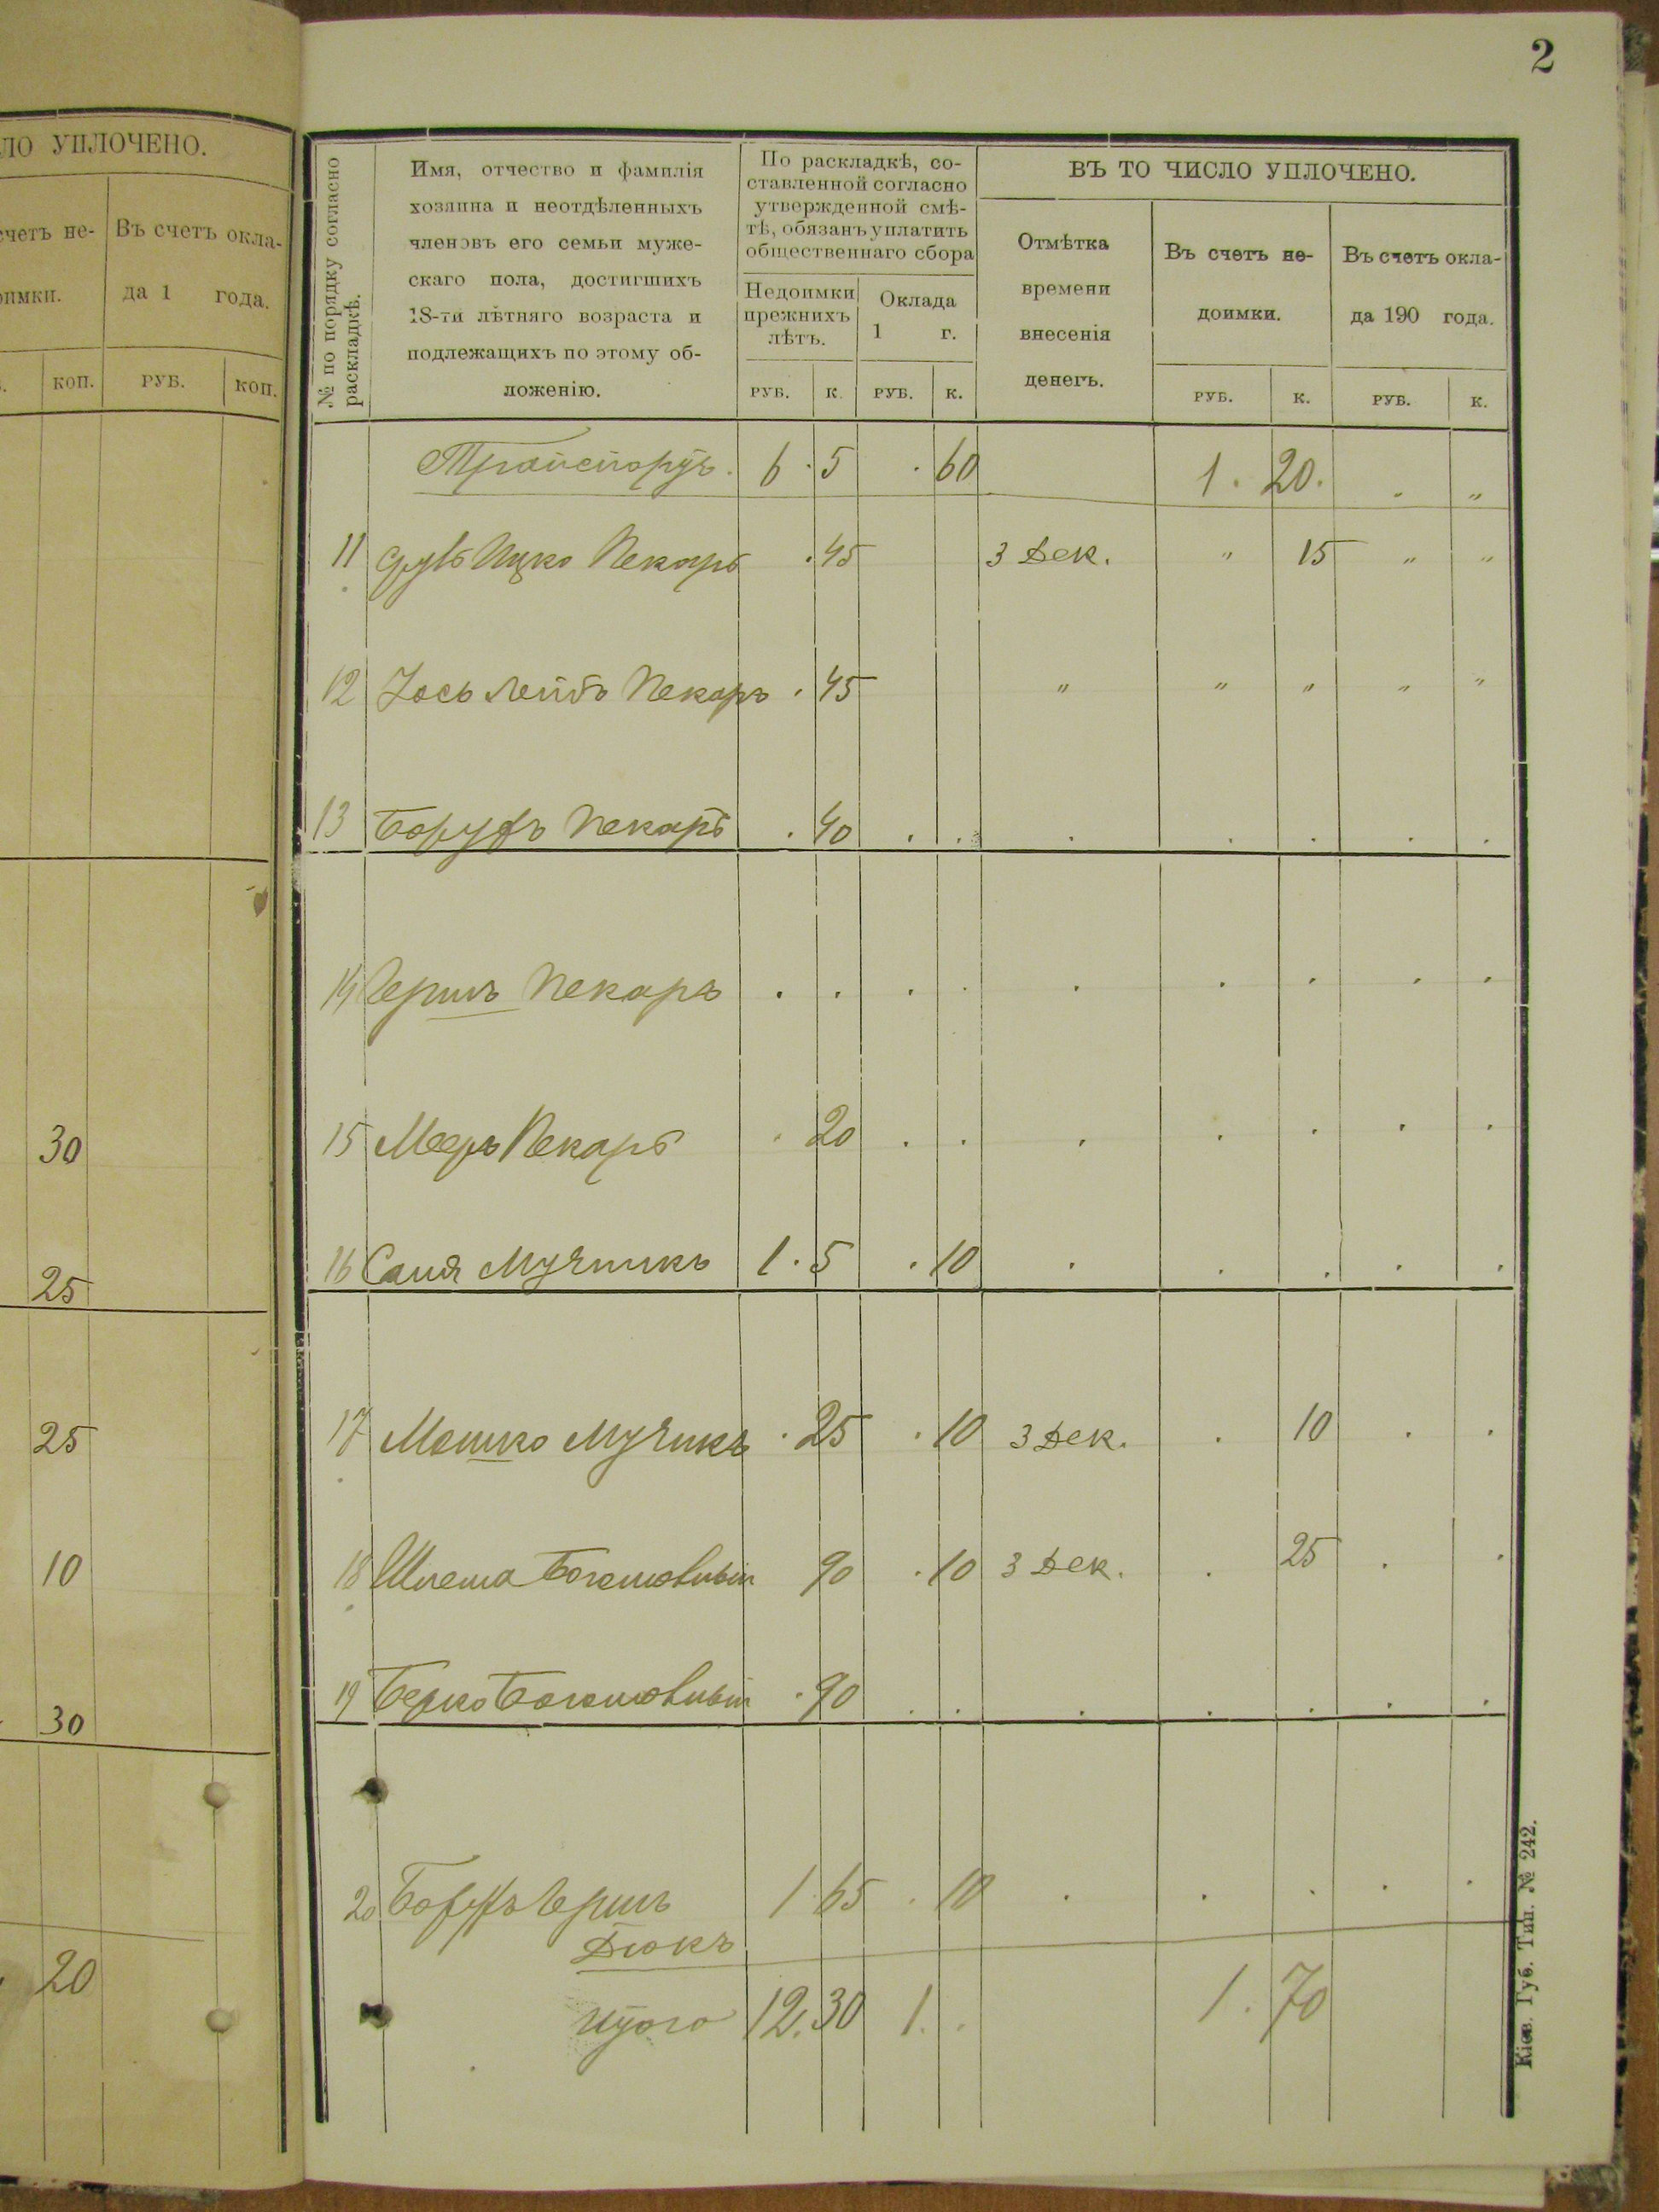 2
ЛО УПЛОЧЕНО.
счетъ не-
Въ счетъ окла-
да 1 года.
коп.
РУБ.
коп.
30
25
25
10
30
20
№ по порядку согласно
раскладкѣ.
Имя, отчество и фамилія
хозяина и неотдѣленныхъ
членовъ его семьи муже-
скаго пола, достигшихъ
18-ти лѣтняго возраста и
подлежащихъ по этому об-
ложенію.
По раскладкѣ, со-
ставленной согласно
утвержденной смѣ-
тѣ, обязанъ уплатить
общественнаго сбора
Недоимки
прежнихъ
лѣтъ.
Оклада
1 г.
РУБ. К. РУБ. К.
ВЪ ТО ЧИСЛО УПЛОЧЕНО.
Отмѣтка
времени
внесенія
денегъ.
Въ счетъ не-
доимки.
Въ счетъ окла-
да 190 года.
РУБ. К. РУБ. К.
Транспортъ. 6 . 5 . 60 1 . 20 . . "
11 Ицко Пекарь . 45 3 Дек. " 15 " "
12 Іось Лейбъ Пекаръ . 45 " " " " "
13 Борухъ Пекарь . 40 . . . . . . .
14 Гершъ Пекаръ . . . . . . . . .
15 Мееръ Пекарь . 20 . . . . . . .
16 Саня Мучникъ 1 . 5 . 10 . . . . .
17 Мошко Мучникъ . 25 . 10 3 Дек. . 10 . .
18 90 . 10 3 Дек. . 25 . .
19 Берко . 90 . . . . . . .
20 Борухъ Гершъ 1 65 . 10 . . . . .
Дюкъ
Итого 12. 30 1. . 1 . 70
Кіев. Губ. Тип. № 242.